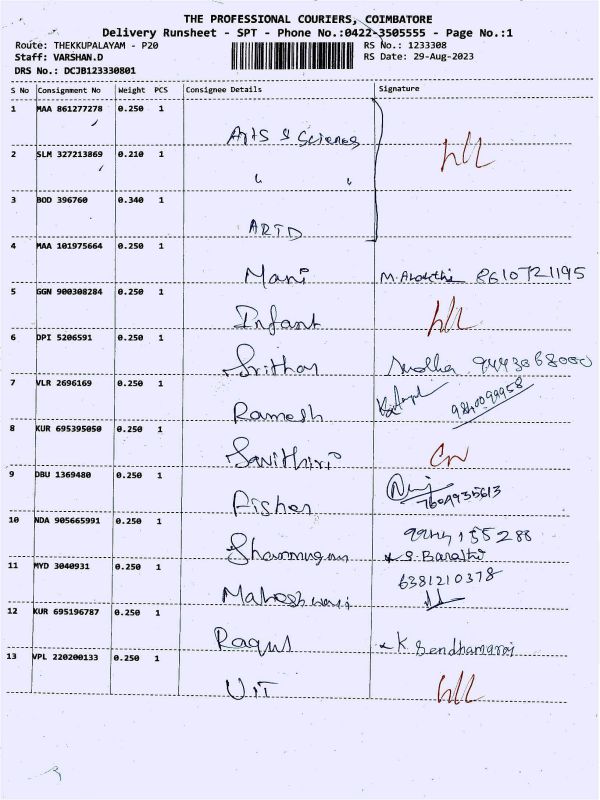 THE PROFESSIONAL COURIERS, COIMBATORE
Delivery Runsheet - SPT - Phone No.:0422-3505555 - Page No.:1
Route: THEKKUPALAYAM - P20 RS No.: 1233308
Staff: VARSHAN.D RS Date: 29-Aug-2023
DRS No.: DCJB123330801
S No Consignment No Weight PCS Consignee Details Signature
1 MAA 861277278 0.250 1
Arts & Science
2 SLM 327213869 0.210 1
" "
3 BOD 396760 0.340 1
ARTD
4 MAA 101975664 0.250 1
Mani M. 8610721195
5 GGN 900308284 0.250 1
Infant
6 DPI 5206591 0.250 1
Srithar Sudha 9443068000
7 VLR 2696169 0.250 1
Ramesh 9840099958
8 KUR 695395050 0.250 1
Savithiri
9 DBU 1369480 0.250 1
Fisher 7604935613
10 NDA 905665991 0.250 1
Shanmugam S. Barathi
11 MYD 3040931 0.250 1 6381210378
Maheshwari
12 KUR 695196787 0.250 1
Ragul K Sendhamarai
13 VPL 220200133 0.250 1
UIT